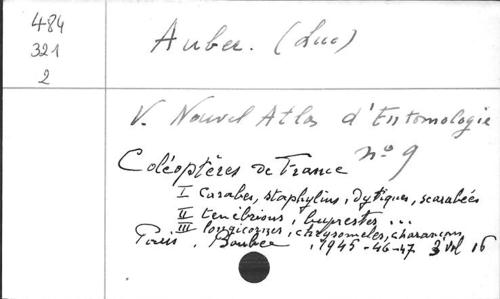 484
321
2
Auber. (Luc)
V. Nouvel Atlas d'Entomologie
n° 9
Coléoptères de France
I Carabes, staphylins, dytiques, scarabées
II tenebrions, buprestes ...
III longicornes, chrysomeles, charançons
Paris, Boubée, 1945-46-47 3 vol 16